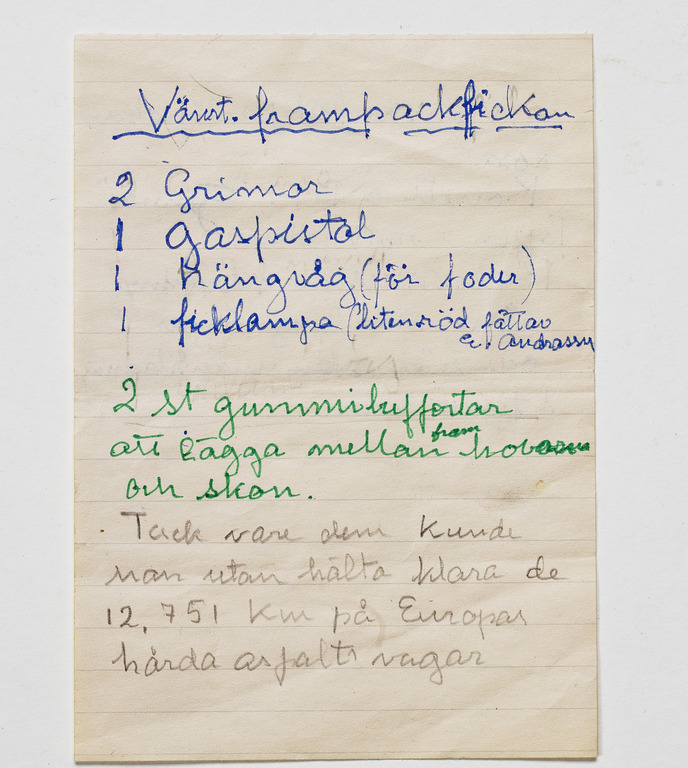 Vänst. frampackfickan
2 Grimor
1 gaspistol
1 hängvåg (för foder)
1 ficklampa (liten röd fått av
E. Andrassy
2 st gummibuffertar
att lägga mellan fram hovarna
och skon.
Tack vare dem kunde
man utan hälta klara de
12,751 Km på Europas
hårda asfalts vägar